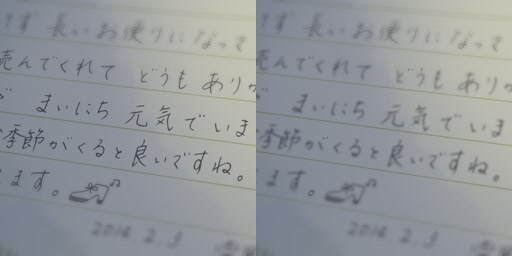 ます 長いお便りになって
読んでくれて どうも ありが
まいにち 元気でいま
季節がくると良いですね。
ます。
2014. 2. 3
ます 長いお便りになって
読んでくれて どうも ありが
まいにち 元気でいま
季節がくると良いですね。
ます。
2014. 2. 3